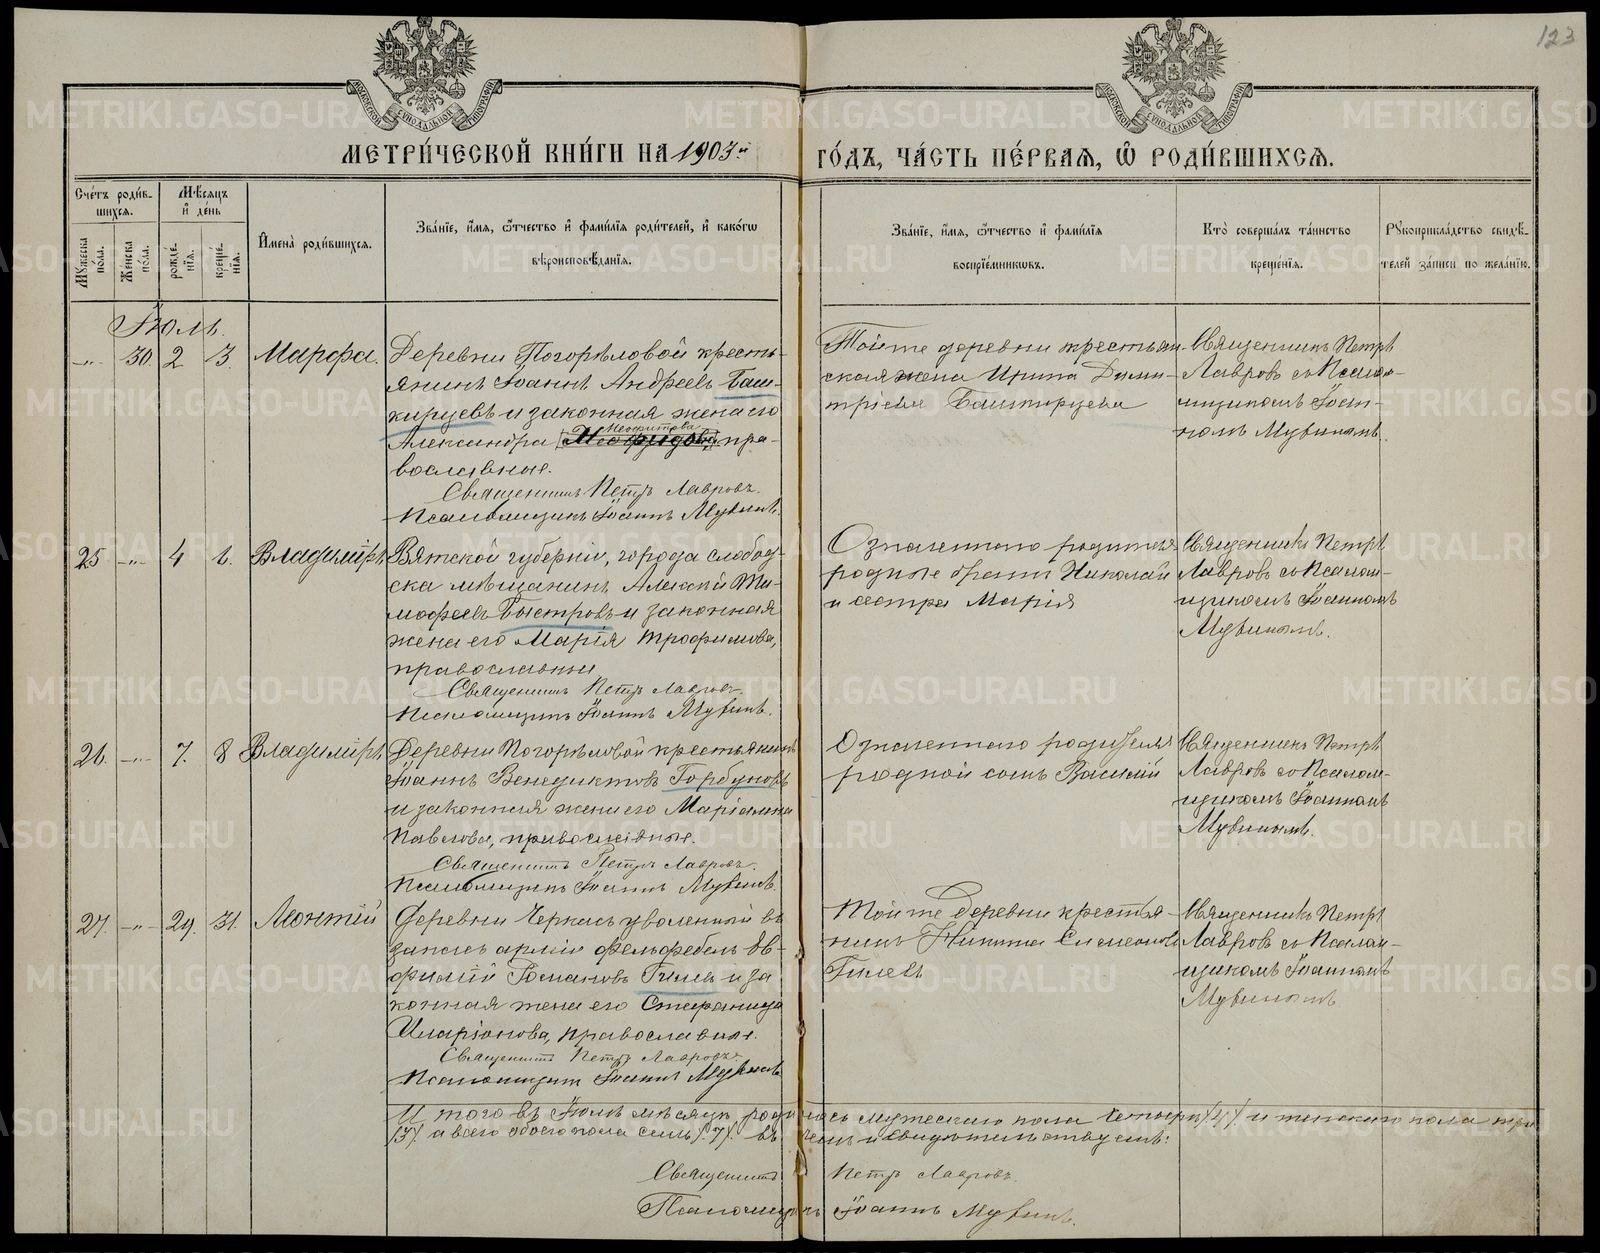 123
МЕТРИ́ЧЕСКОЙ КНИ́ГИ НА 1903й ГО́ДЪ, ЧА́СТЬ ПЕ́РВАЯ, Ѿ РОДИ́ВШИХСЯ.
Сче́тъ роди́вшихся.
Мѣ́сяцъ и҆ де́нь
Мꙋ́жеска по́ла.
Же́нска по́ла.
рожде́нїя.
креще́нїя.
И҆мена̀ роди́вшихся.
Зва́нїе, и҆́мя, ѻ҆́тчество и҆ фами́лїя роди́телей, и҆ како́гѡ
вѣроисповѣ́данїя.
Зва́нїе, и҆́мя, ѻ҆́тчество и҆ фами́лїя
воспрїе́мникѡвъ.
Кто̀ соверша́лъ та́инство
креще́нїя.
Рꙋкоприкла́дство свидѣ́-
телей за́писи по жела́нїю.
Іюль.
30. 2 3. Марѳа.
Деревни Погорѣловой кресть-
янинъ Іоаннъ Андреевъ Баш-
кирцевъ и законная жена его
Александра Неофитова, пра-
вославные.
Священникъ Петръ Лавровъ.
Псаломщикъ Іоаннъ Мувинъ.
Тойже деревни крестьян-
ская жена Ирина Дими-
тріева Башкирцева
Священникъ Петръ
Лавровъ съ Псалом-
щикомъ Іоан-
номъ Мувинымъ.
25 4 6. Владиміръ
Вятской губерніи, города слобод-
ска мѣщанинъ Алексѣй Ти-
мофеевъ Быстровъ и законная
жена его Марія Трофимова,
православные
Священникъ Петръ Лавровъ.
Псаломщикъ Іоаннъ Мувинъ.
Означеннаго родителя
родные братъ Николай
и сестра Марія
Священникъ Петръ
Лавровъ съ Псалом-
щикомъ Іоанномъ
Мувинымъ.
26. 7. 8 Владиміръ
Деревни Погорѣловой крестьянинъ
Іоаннъ Венедиктовъ Горбуновъ
и законная жена его Маріамна
Павлова, православные.
Священникъ Петръ Лавровъ.
Псаломщикъ Іоаннъ Мувинъ.
Означеннаго родителя
родной сынъ Василій
Священникъ Петръ
Лавровъ съ Псалом-
щикомъ Іоанномъ
Мувинымъ.
27. 29. 31. Леонтій
Деревни Черкасъ уволенный въ
запасъ арміи фельдфебель Ев-
фимій Романовъ Гилевъ и за
конная жена его Стефанида
Иларіонова, православные.
Священникъ Петръ Лавровъ.
Псаломщикъ Іоаннъ Мувинъ
Тойже деревни крестья-
нинъ Никита Симеоновъ
Гилевъ
Священникъ Петръ
Лавровъ съ Псалом-
щикомъ Іоанномъ
Мувинымъ
Итого въ Іюлѣ мѣсяцѣ родилось мужескаго пола четыре /4/ и женскаго пола три
/3/ а всего обоего пола семь /7/. въ чемъ и свидѣтельствуемъ:
Священникъ Петръ Лавровъ.
Псаломщикъ Іоаннъ Мувинъ.